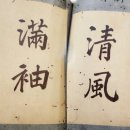 清風
滿袖